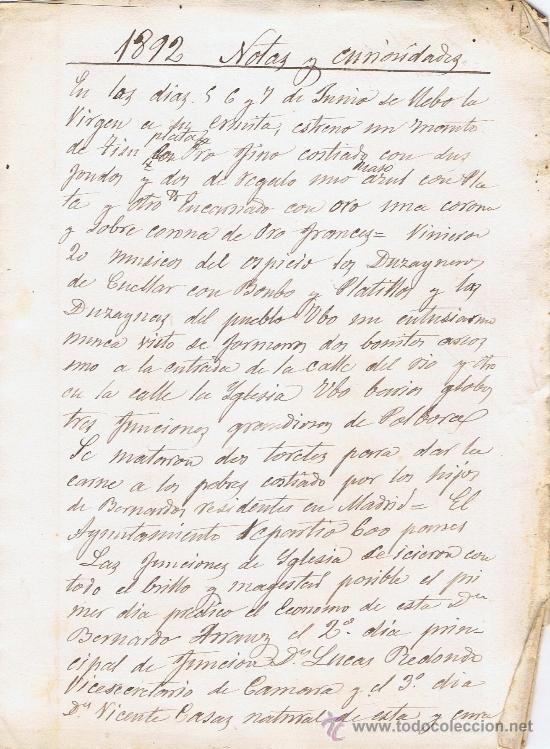 1892 Notas y curiosidades
En los dias 5 6 y 7 de Junio se llebo la
Virgen a su ermita, estreno un manto
plata y
de tisu con Oro fino costiado con sus
raso
fondos y dos de regalo uno azul con Pla
ta y otro Encarnado con oro una corona
y sobre corona de Oro frances = Vinieron
20 musicos del ospicio los Duzayneros
de Cuellar con Bonbo y Platillos y los
Duzaynas del pueblo Ubo un entusiasmo
nunca visto se formaron dos bonitos arcos
uno a la entrada de la calle del Rio y otro
en la calle la Yglesia Ubo barios globos
tres funciones grandiosas de Polbora
Se mataron dos toretes para dar la
carne a los pobres costiado por los hijos
de Bernardos residentes en Madrid = El
Ayuntamiento repartio 600 panes
Las funciones de Yglesia se icieron con
todo el brillo y magestad posible el pri
mer dia predico el Economo de esta Dn
Bernardo Arranz el 2º dia prin-
cipal de funcion Dn Lucas Redondo
Vicesecretario de Camara y el 3º dia
Dn Vicente Casas natural de esta y cura
© www.todocoleccion.net